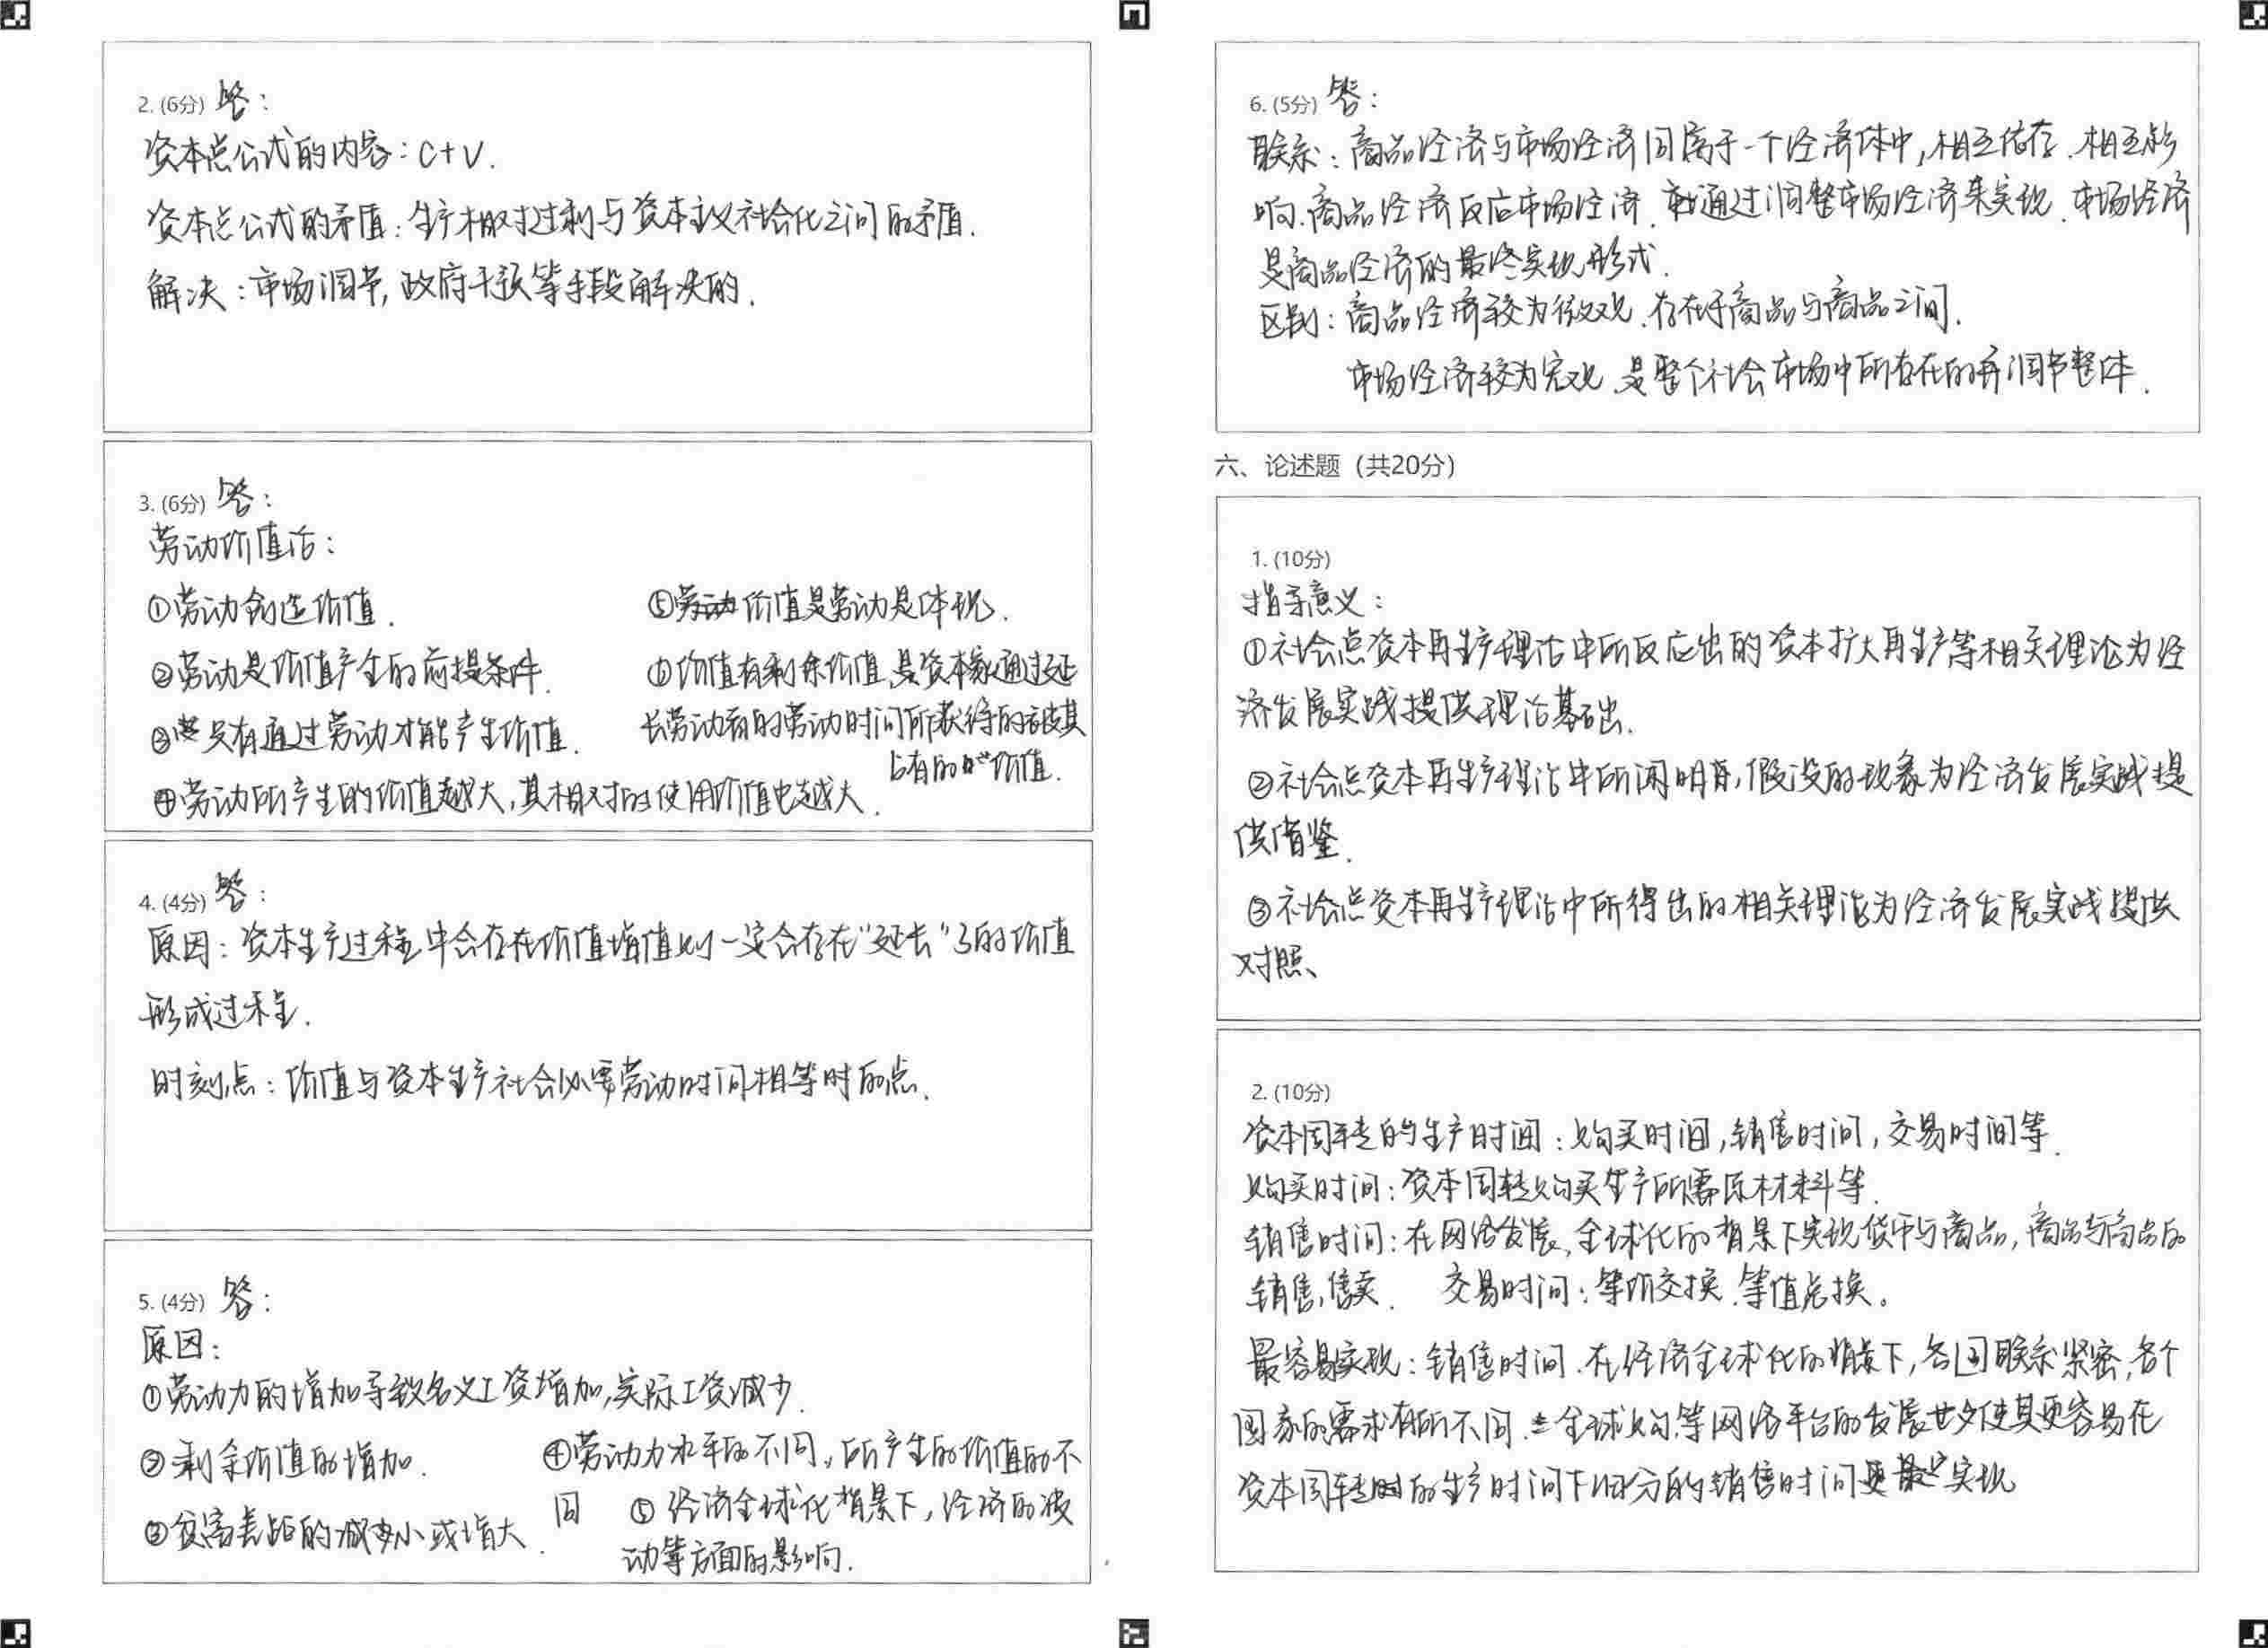 2. (6分) 答：
资本总公式的内容：C+V.
资本总公式的矛盾：生产相对过剩与资本主义社会化之间的矛盾.
解决：市场调节, 政府干预等手段解决的.
3. (6分) 答：
劳动价值论：
①劳动创造价值.
②劳动是价值产生的前提条件.
③只有通过劳动才能产生价值.
④劳动所产生的价值越大,其相对的使用价值也越大.
⑤价值是劳动是体现.
⑥价值有剩余价值,是资本家通过延
长劳动者的劳动时间所获得的被其
占有的价值.
4. (4分) 答：
原因：资本生产过程中会存在价值增值则一定会存在“延长”了的价值
形成过程.
时刻点：价值与资本生产社会必要劳动时间相等时的点.
5. (4分) 答：
原因：
①劳动力的增加导致名义工资增加,实际工资减少.
②剩余价值的增加.
③贫富差距的减小或增大.
④劳动力水平的不同,所产生的价值的不
同
⑤经济全球化背景下,经济的波
动等方面的影响.
6. (5分) 答：
联系：商品经济与市场经济同属于一个经济体中,相互依存.相互影
响.商品经济反应市场经济.通过调整市场经济来实现.市场经济
是商品经济的最终实现形式.
区别：商品经济较为微观.存在于商品与商品之间.
市场经济较为宏观.是整个社会市场中所存在的再调节整体.
六、论述题（共20分）
1. (10分)
指导意义：
①社会总资本再生产理论中所反应出的资本扩大再生产等相关理论为经
济发展实践提供理论基础.
②社会总资本再生产理论中所阐明,假设的现象为经济发展实践提
供借鉴.
③社会总资本再生产理论中所得出的相关理论为经济发展实践提供
对照、
2. (10分)
资本周转的生产时间：购买时间,销售时间,交易时间等.
购买时间：资本周转购买生产所需原材料等.
销售时间：在网络发展,全球化的背景下实现货币与商品,商品与商品的
销售,售卖. 交易时间：等价交换.等值兑换。
最容易实现：销售时间.在经济全球化的背景下,各国联系紧密,各个
国家的需求有所不同.全球购等网络平台的发展也使其更容易在
资本周转的生产时间下细分的销售时间最实现